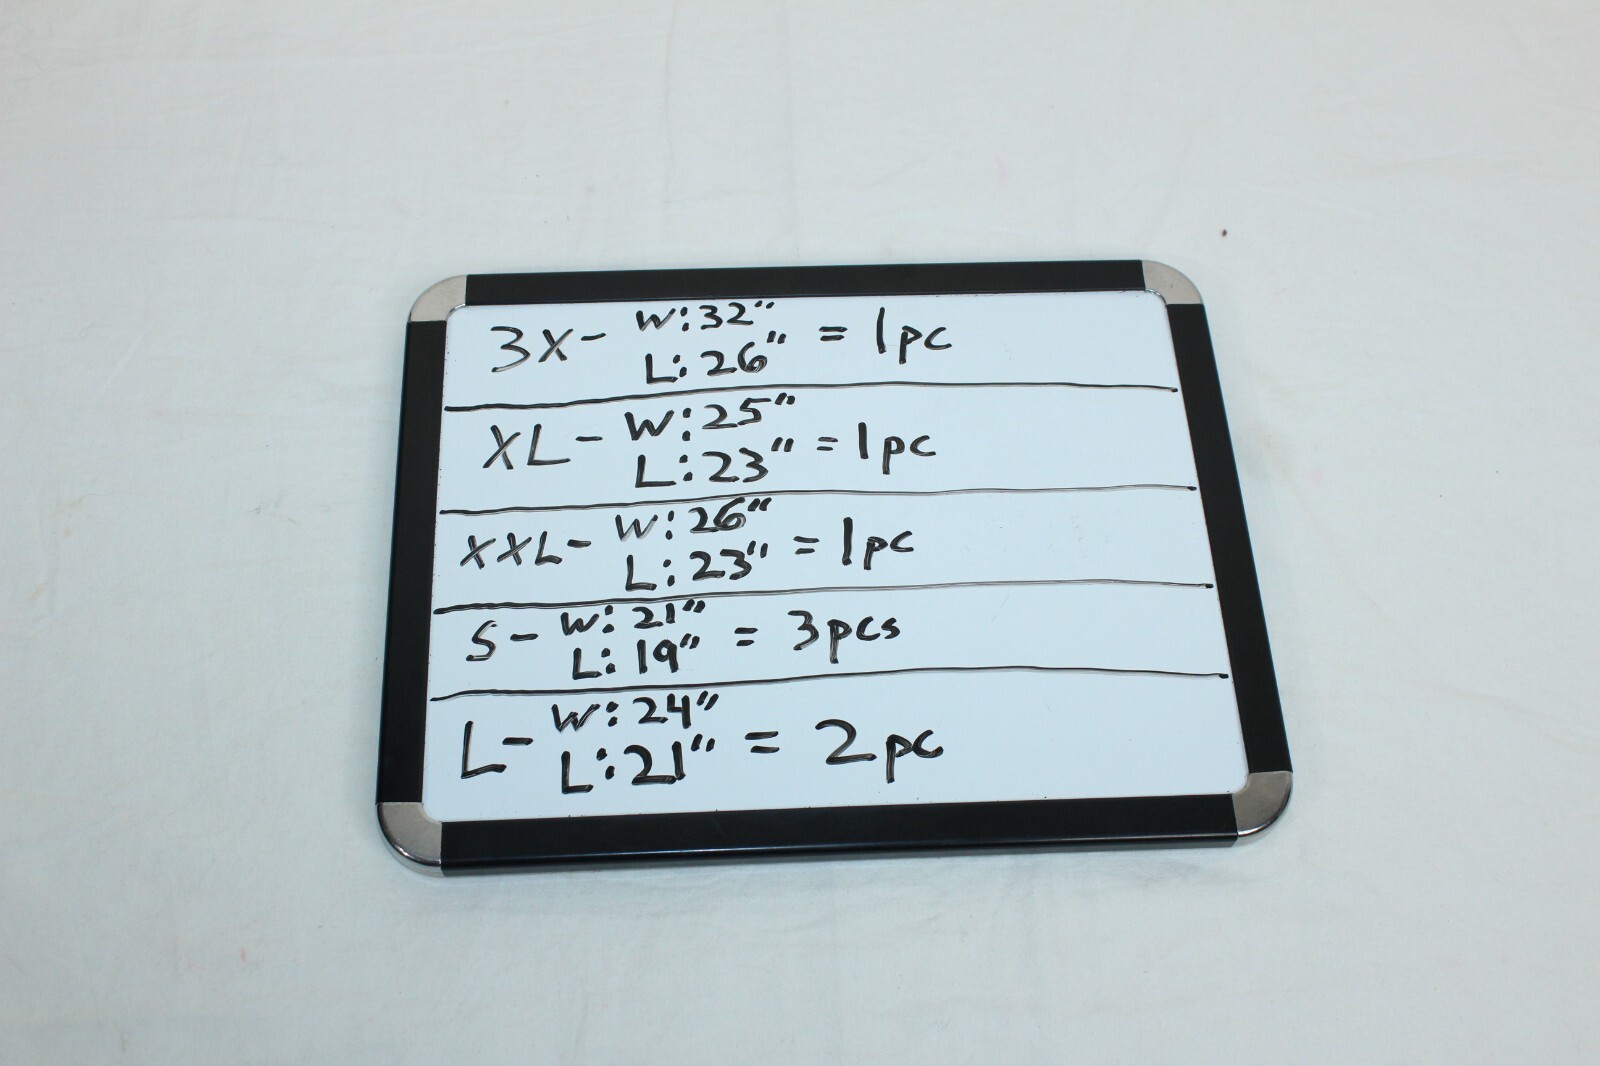 3X- W:32" = 1pc
L:26"
XL- W:25" = 1pc
L:23"
XXL- W:26" = 1pc
L:23"
S- W:21" = 3pcs
L:19"
L- W:24" = 2pc
L:21"